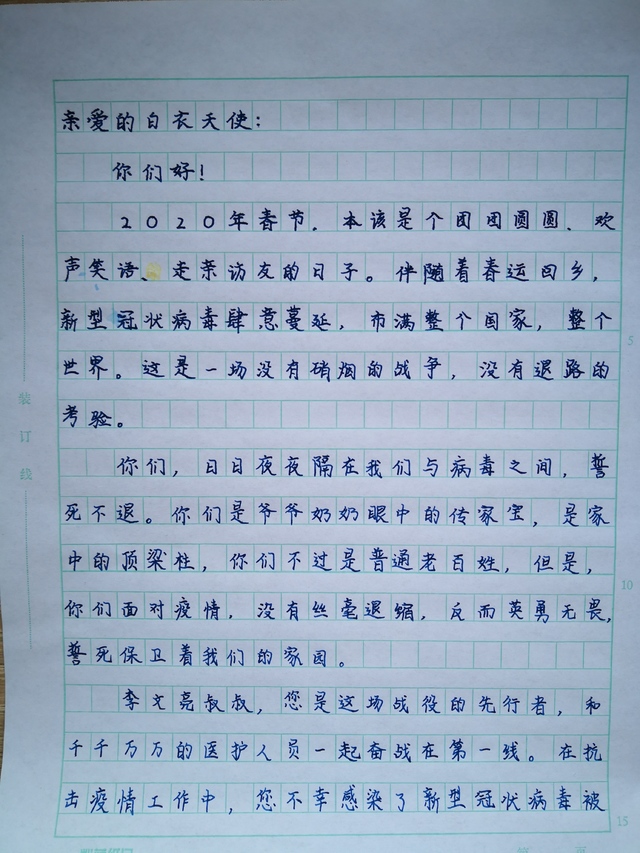 亲爱的白衣天使：
你们好！
2020年春节．本该是个团团圆圆、欢
声笑语、走亲访友的日子。伴随着春运回乡，
新型冠状病毒肆意蔓延，市满整个国家，整个
世界。这是一场没有硝烟的战争，没有退路的
考验。
你们，日日夜夜隔在我们与病毒之间，誓
死不退。你们是爷爷奶奶眼中的传家宝，是家
中的顶梁柱，你们不过是普通老百姓，但是，
你们面对疫情，没有丝毫退缩，反而英勇无畏，
誓死保卫着我们的家园。
李文亮叔叔，您是这场战役的先行者，和
千千万万的医护人员一起奋战在第一线。在抗
击疫情工作中，您不幸感染了新型冠状病毒被
装订线
5
10
15